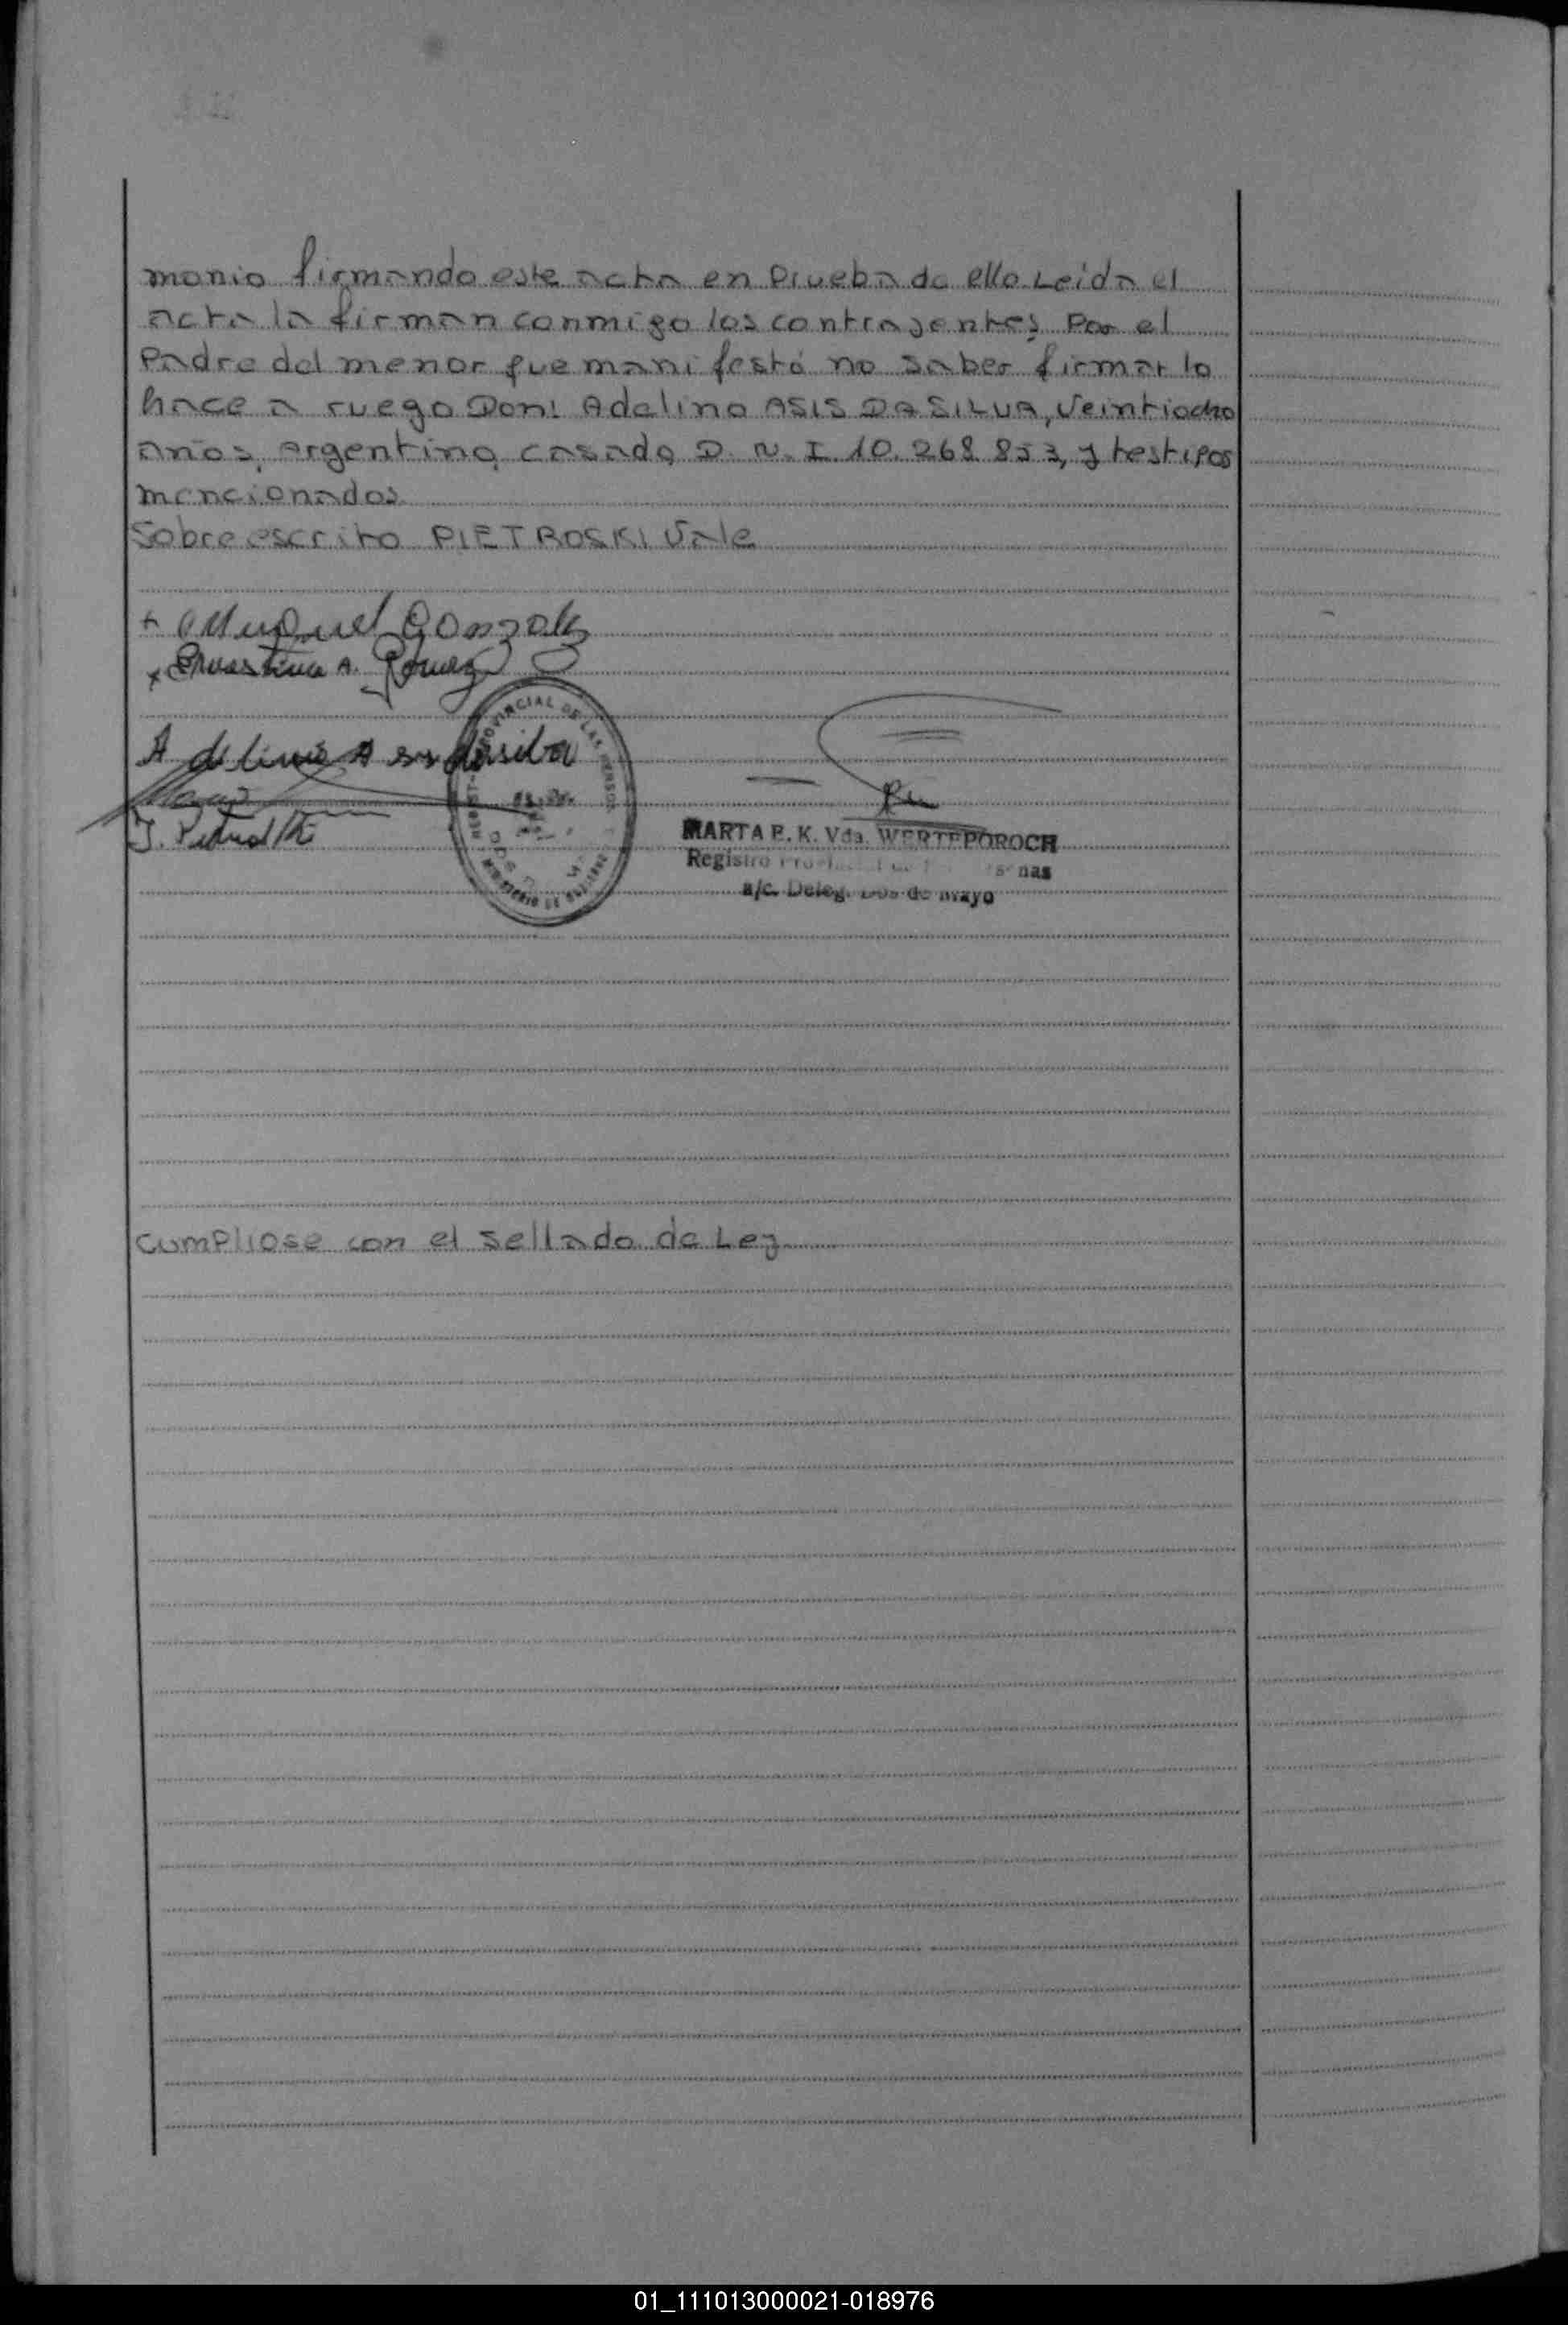 monio firmando este acta en Prueba de ello Leida el
acta la firman conmigo los contrajentes, Por el
Padre del menor que manifestó no saber firmar lo
hace a ruego Don: Adelino ASIS DA SILVA, Veintiocho
años, Argentino, casado, D. N. I. 10.268.853, y testigos
mencionados.
Sobre escrito PIETROSKI Vale
+ Miguel Gonzalez
x A. Gomez
Adelino Asis dasilva
J.
PROVINCIAL DE LAS PERSON
MARTA E. K. Vda. WERTEPOROCH
Registro
a/c. Deleg. Dos de mayo
cumpliose con el sellado de Ley
01_111013000021-018976